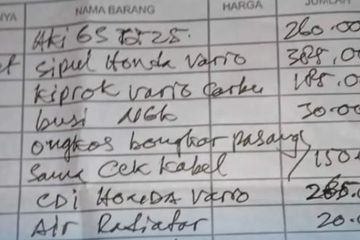 NYA NAMA BARANG HARGA JUMLAH
Aki GS 260.00
Sipul Honda Vario 388.00
Kiprok Vario Carbu 185.0
busi NGK 30.00
ongkos bongkar pasang
Sama Cek Kabel 150.
CDI HONDA Vario 265.
Air Radiator 20.0